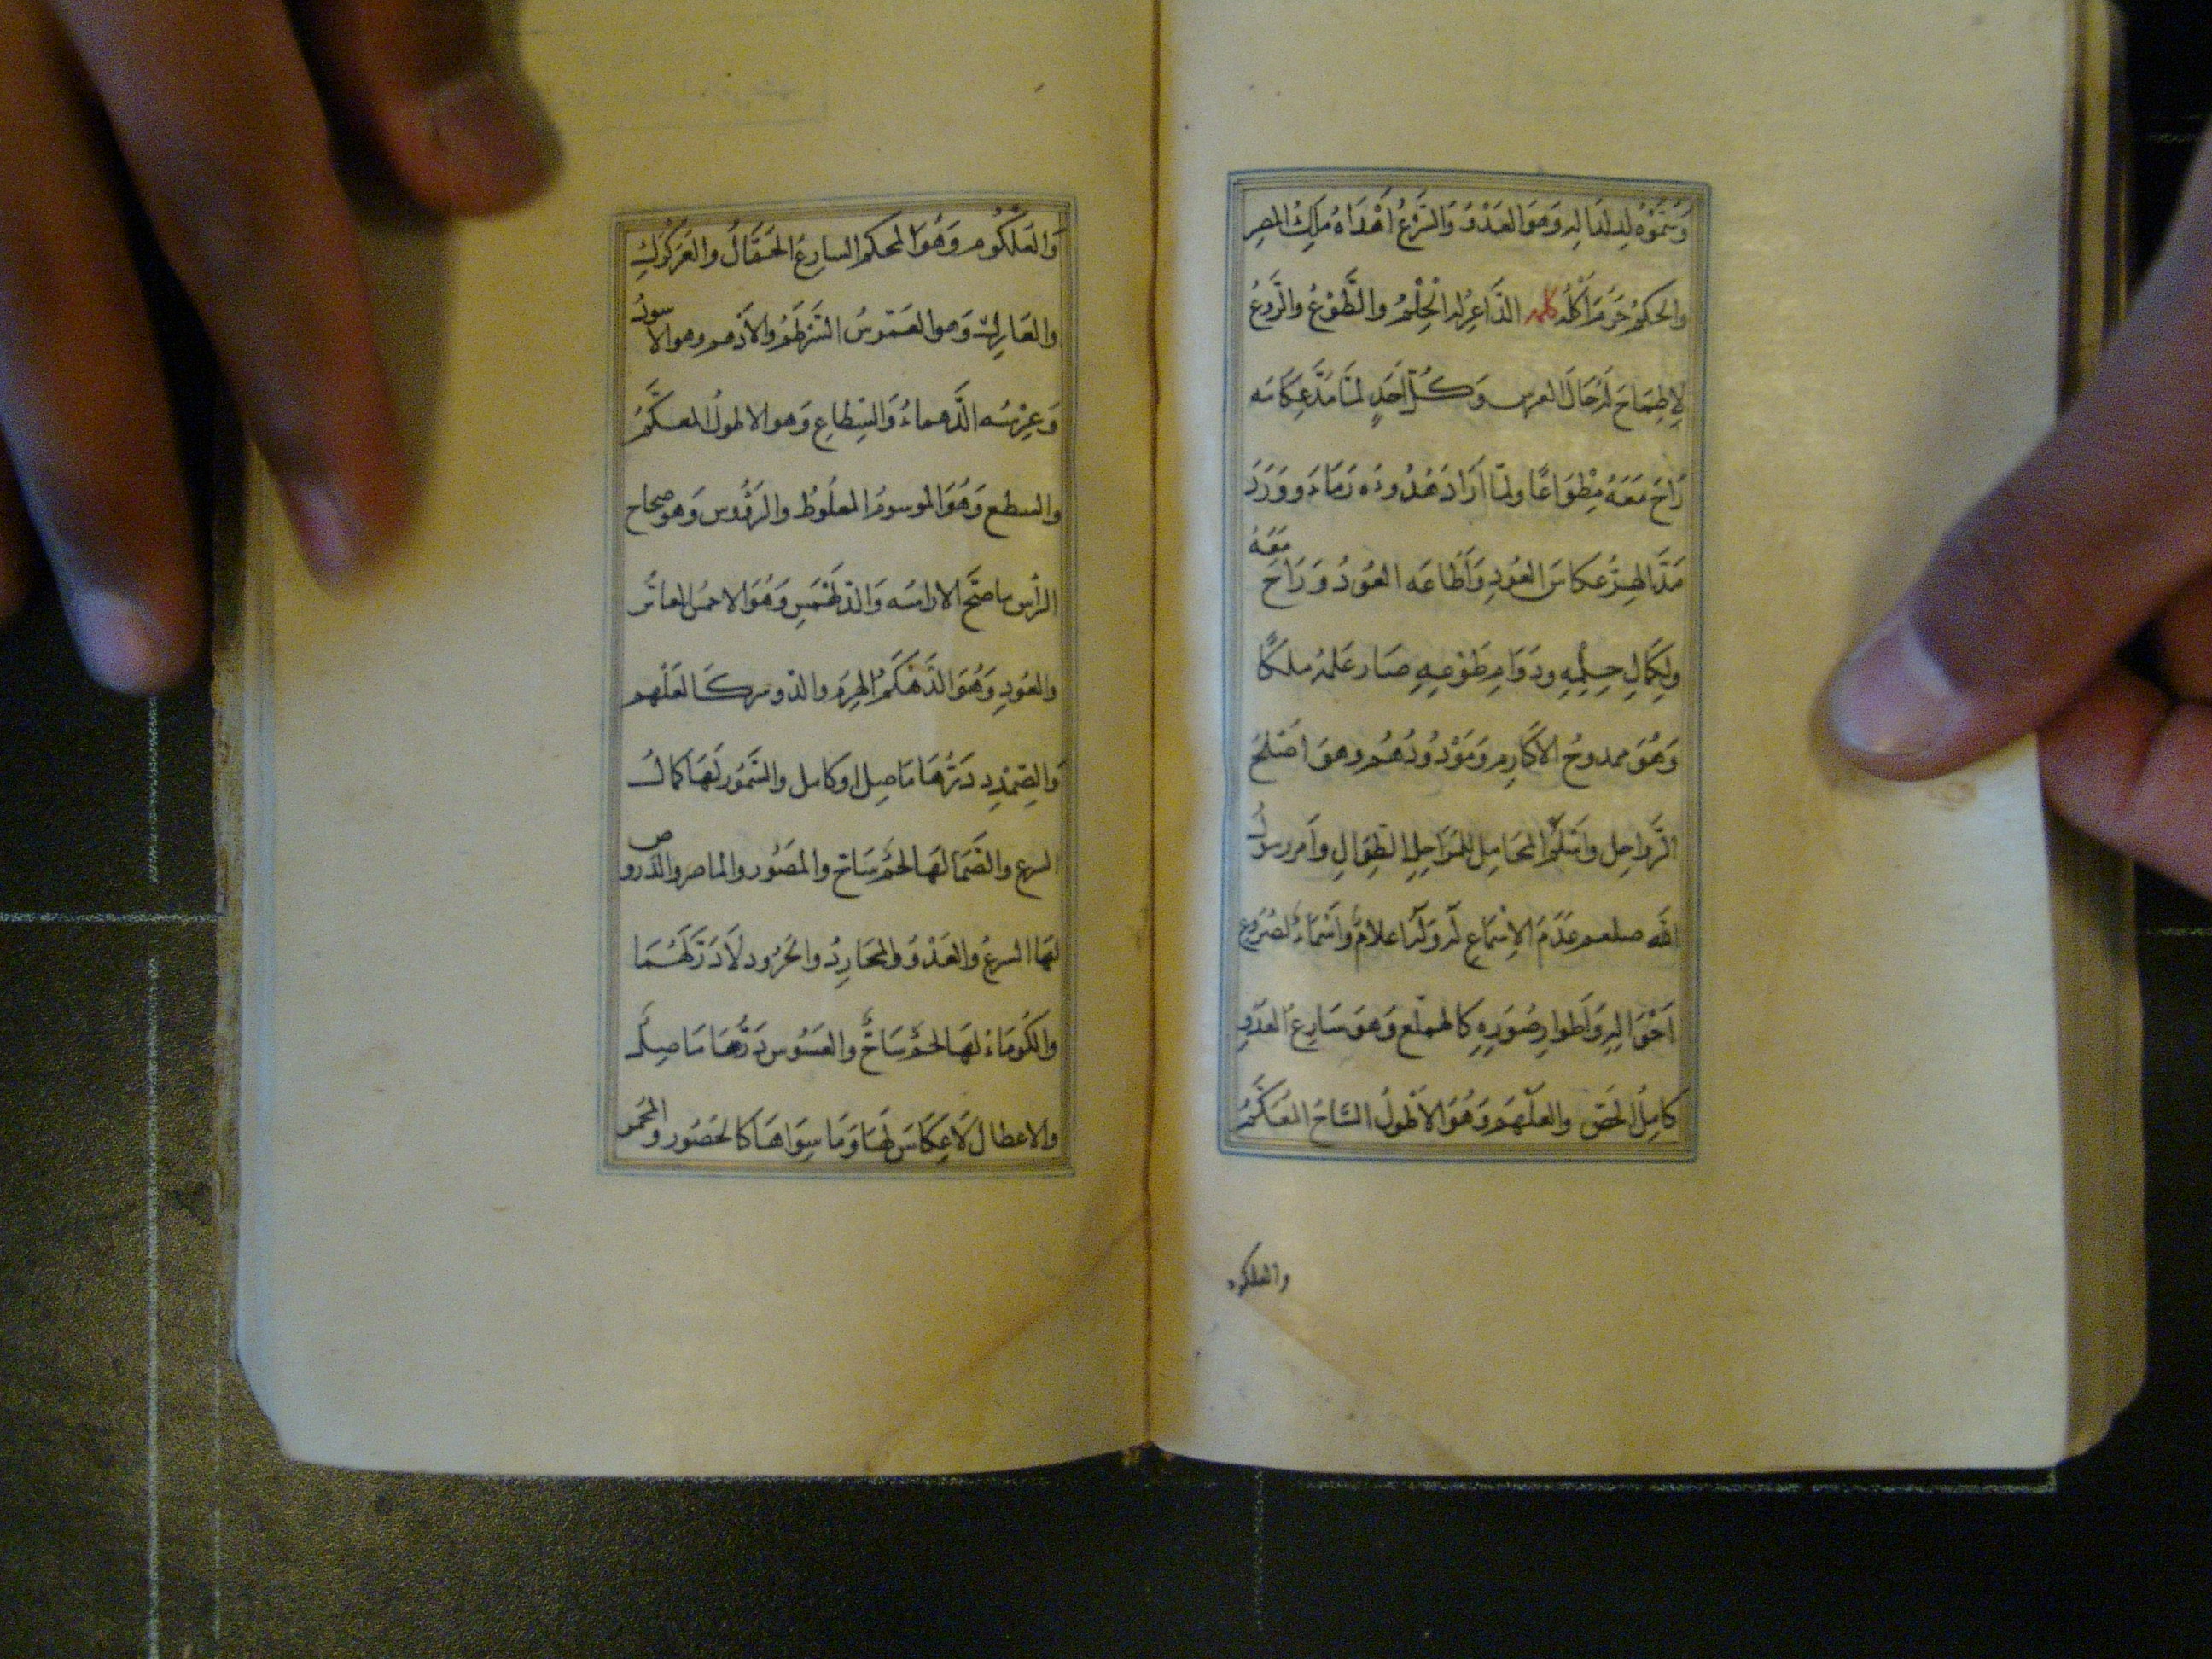 وَسَمَّوْهُ لِدلدَالِهِ وَهوَ العَدْوُ وَالسَّرْعُ أَهْدَاهُ مَلِكُ المصر
والحكمُ حَرُمَ أَكْلُهُ كلمه الدَّاعِ لِهِ الْحِلْمُ والطَّوْعُ والرَّوعُ
لِإطِمَاحَ لَهُ حَالَ العرس وَكُلُّ أَحَدٍ لمّا مَدَّ عِكَاسَه
رَاحَ مَعَهُ مِطْوَاعًا ولمّا أَرَادَ هُدُوءَه رَمَاءَ وَوَرَدَ
مَدَّ الهِرُّ عكاسَ العَودِ وَأَطَاعَه العَودُ وَرَاحَ مَعَهُ
ولِكَمَالِ حِلْمِهِ ودَوَامِ طَوْعِهِ صَار عَلمُهُ ملكًا
وَهُوَ ممدوحُ الأَكَارِمِ وَمَوْدُودُهُم وهوَ اَصْلَحُ
الرَّواحِل واَسْلَمُ المحَامِل لِلمَرَاحِلِ الطِّوَالِ وأَمر رسولُ
الله صلعم عَدَمَ الإِسْمَاعِ لَهُ وَلَهَا أعلامٌ وأَسْمَاءٌ لصُرُوعِ
اَحْوَالِهِ وَأَطوارِ صُوَرِهِ كالهملع وَهوَ سَارِعُ العَدْوِ
كامِلُ الحَصِّ والعلْهَم وَهُوَ الأَطولُ السَّاحُ العُكَمُّ
والعلكوم
وَالعَلْكُومِ وَهُوَ المحكم السارِعُ الحَسَقَالُ والعَرَكْرَكِ
والعَارِك وَهوا العَمَوسُ السَّرْطَمُ والأَدهم وهو الاسودُ
وَعِرْسُه الدَّهماءُ وَالسِّطَاعِ وَهو الاطولُ المعكَّمُ
والسطع وَهُوَ الموسومُ المعلُوطُ والرَوْدس وَهو صحاح
الرأس ما صَحَّ الا راسُه وَالدلَهْمَسِ وَهُوَ الاحمسُ العاسُّ
والعَودِ وَهُوَ الدَّهْكَمُ الهَرِمُ والدوسرِ كَالعَلْهم
وَالصِّمْرِدِ دَرُّهَا مَاصِل اوكامل والسَّمُور لَهَا كمالُ
السرع والصَّمَا لَهَا لحمٌ سَاحّ والمَصُور والماصر والدَّرو ص
لهَا السرعُ والعَدْوُ والمحَارِدُ والحَرُود لَا دَرَّ لَهُمَا
والكَومَاءُ لهَا لحمٌ سَاحٌّ والعَسُوس دَرُّهَا مَاصِلٌ
والاعطال لَا عِكَاسَ لهَا وَمَا سِوَاهَا كالحَصُور والمحمر